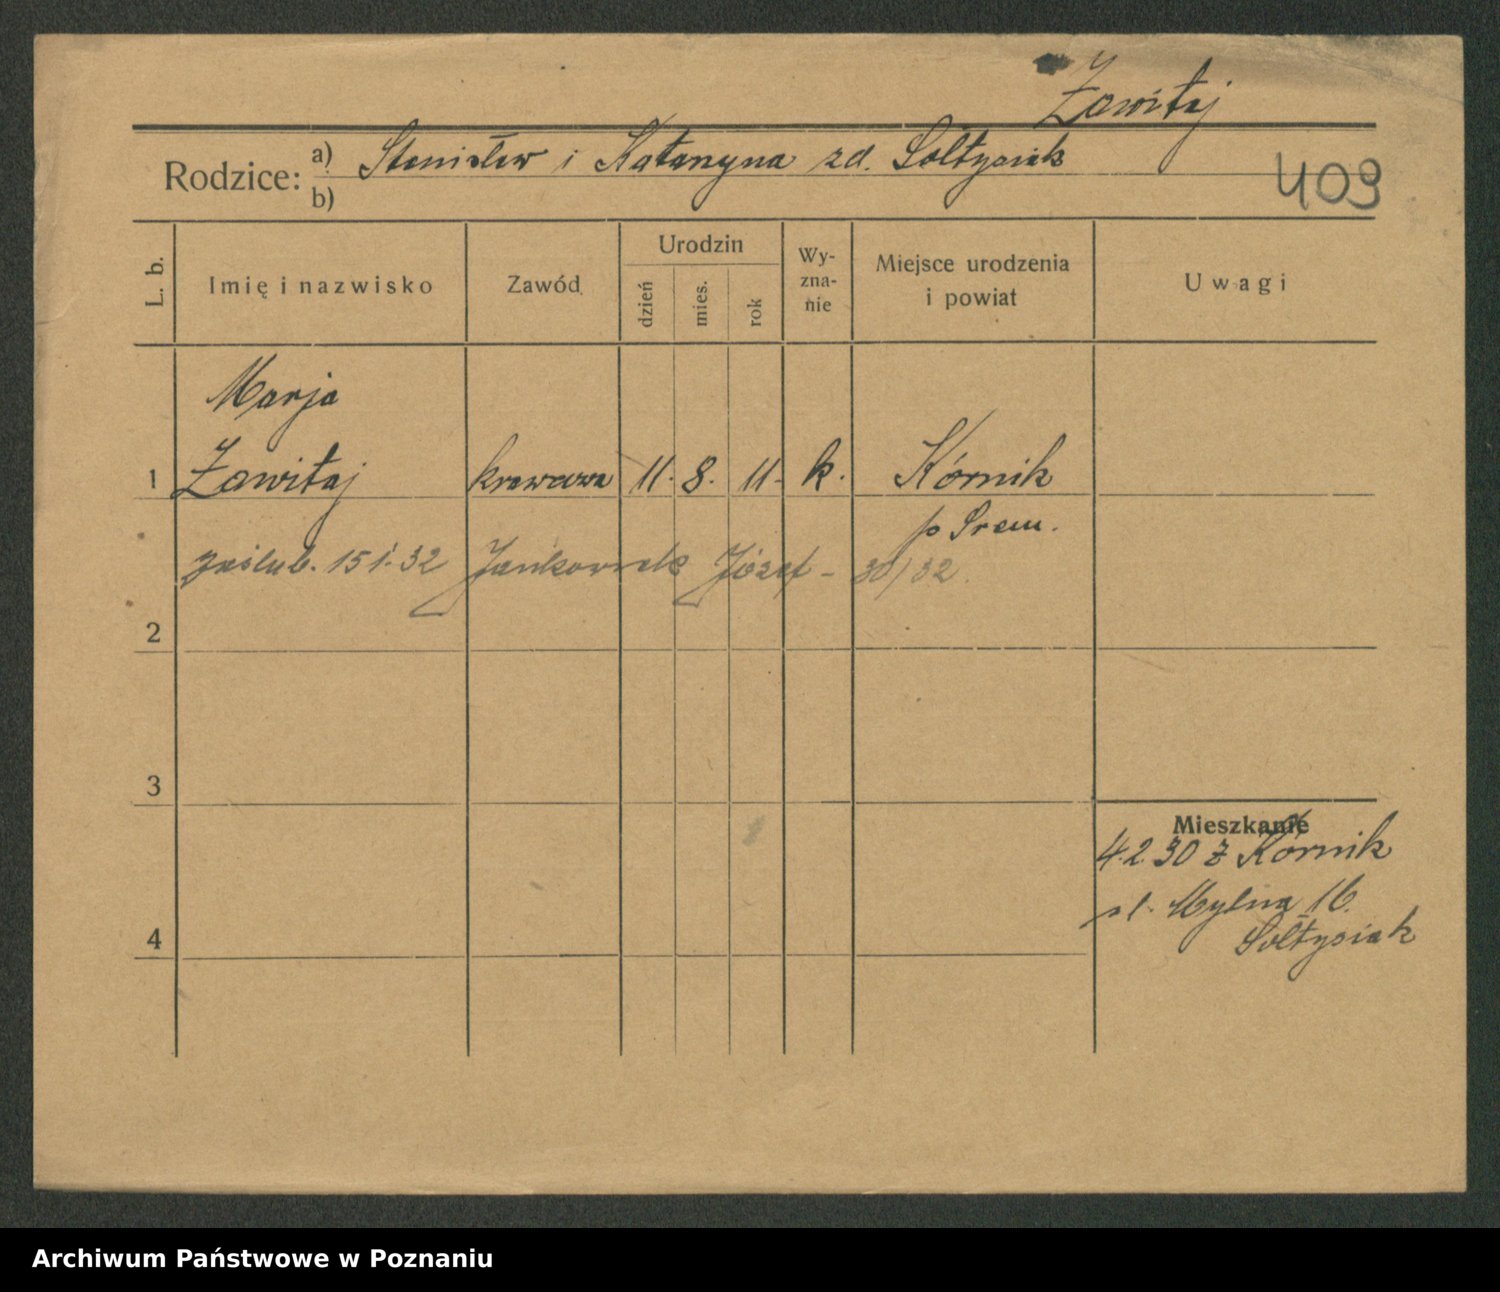 Zawitaj
Rodzice: a) Stanisław i Katarzyna zd. Sołtysiak
b)
409
L. b.
Imię i nazwisko
Zawód
Urodzin
dzień
mies.
rok
Wy-
zna-
nie
Miejsce urodzenia
i powiat
Uwagi
Marja
1 Zawitaj krawcowa 11. 8. 11. k. Kórnik
p Śrem.
zaślub. 15 1. 32 Jankowiak Józef - 30/32.
2
3
Mieszkanie
4.2.30 z Kórnik
ul. Mylna 16.
4
Sołtysiak
Archiwum Państwowe w Poznaniu